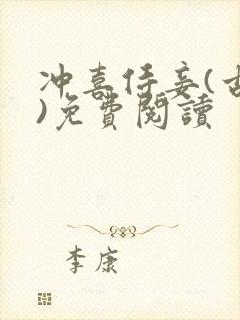 冲喜侍妾(古
)免费閱讀
李康